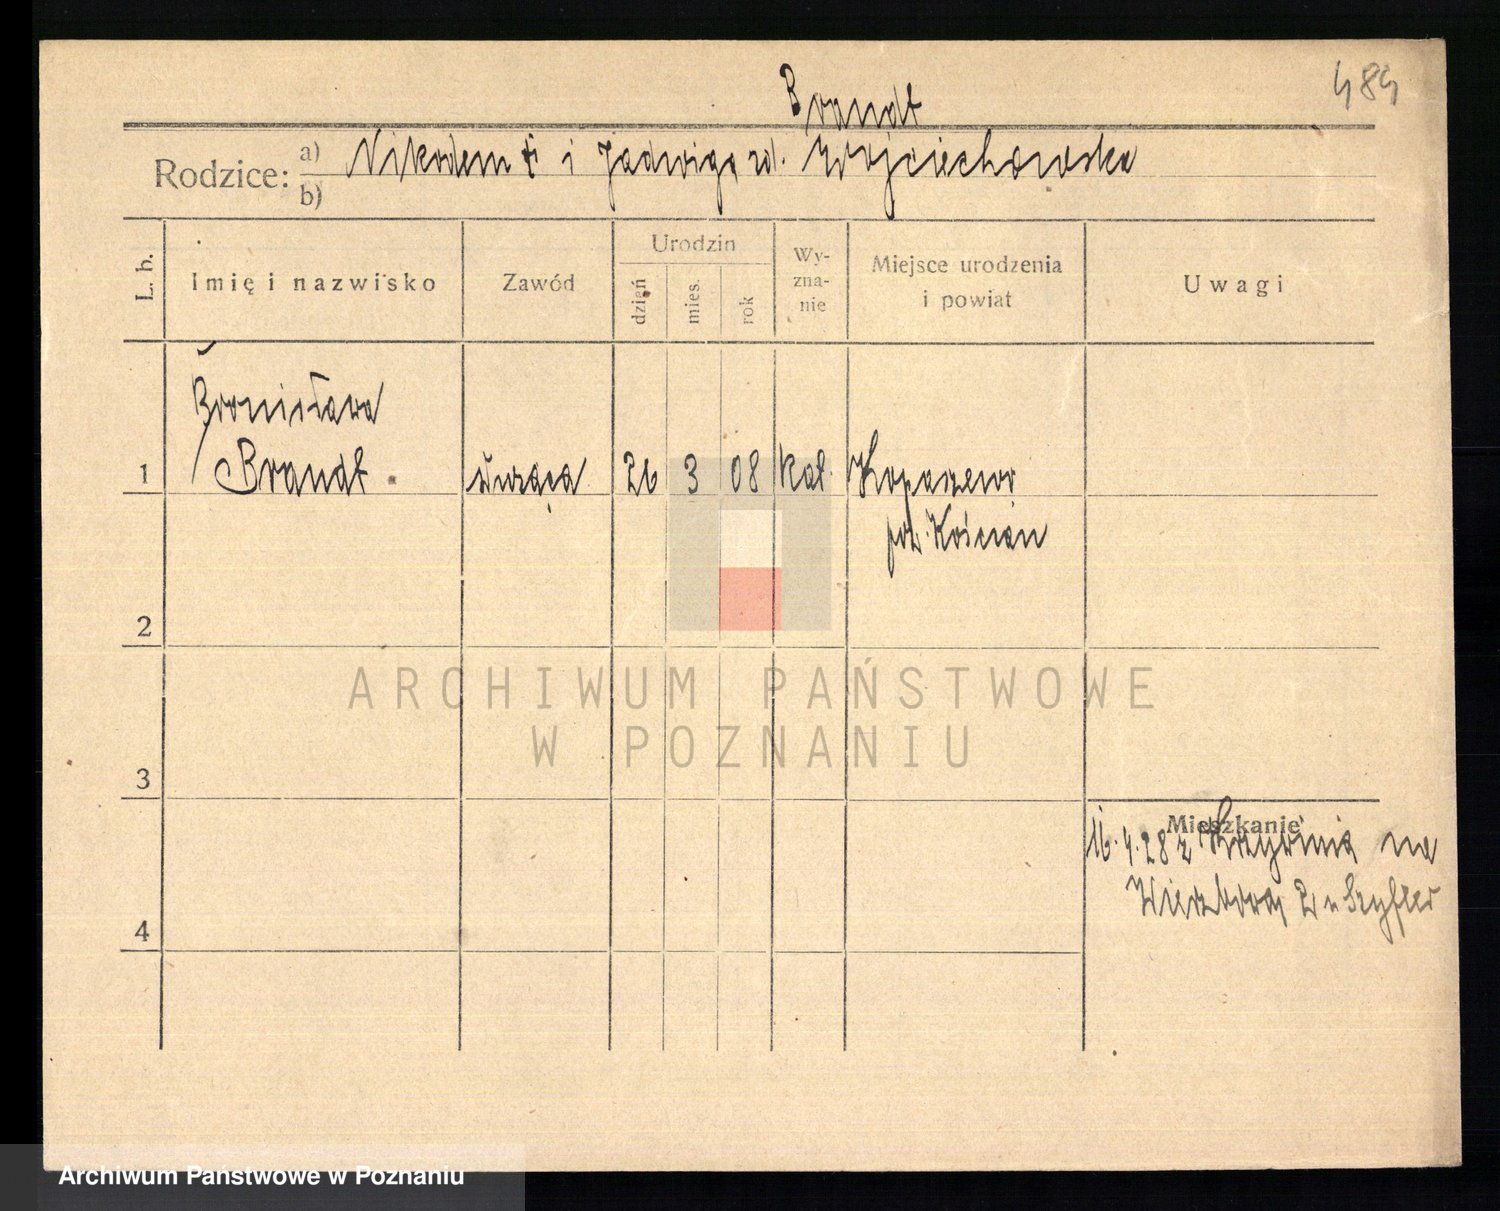 484
Brandt
Rodzice: a) Nikodem † i Jadwiga zd. Wojciechowska
b)
L. b.
Imię i nazwisko
Zawód
Urodzin
dzień
mies.
rok
Wy-
zna-
nie
Miejsce urodzenia
i powiat
Uwagi
Bronisława
1 Brandt służąca 26 3 08 kat. Kopaszewo
pow. Kościan
2
ARCHIWUM PAŃSTWOWE
W POZNANIU
3
Mieszkanie
16.4.28 z Krzywinia na
4
Archiwum Państwowe w Poznaniu